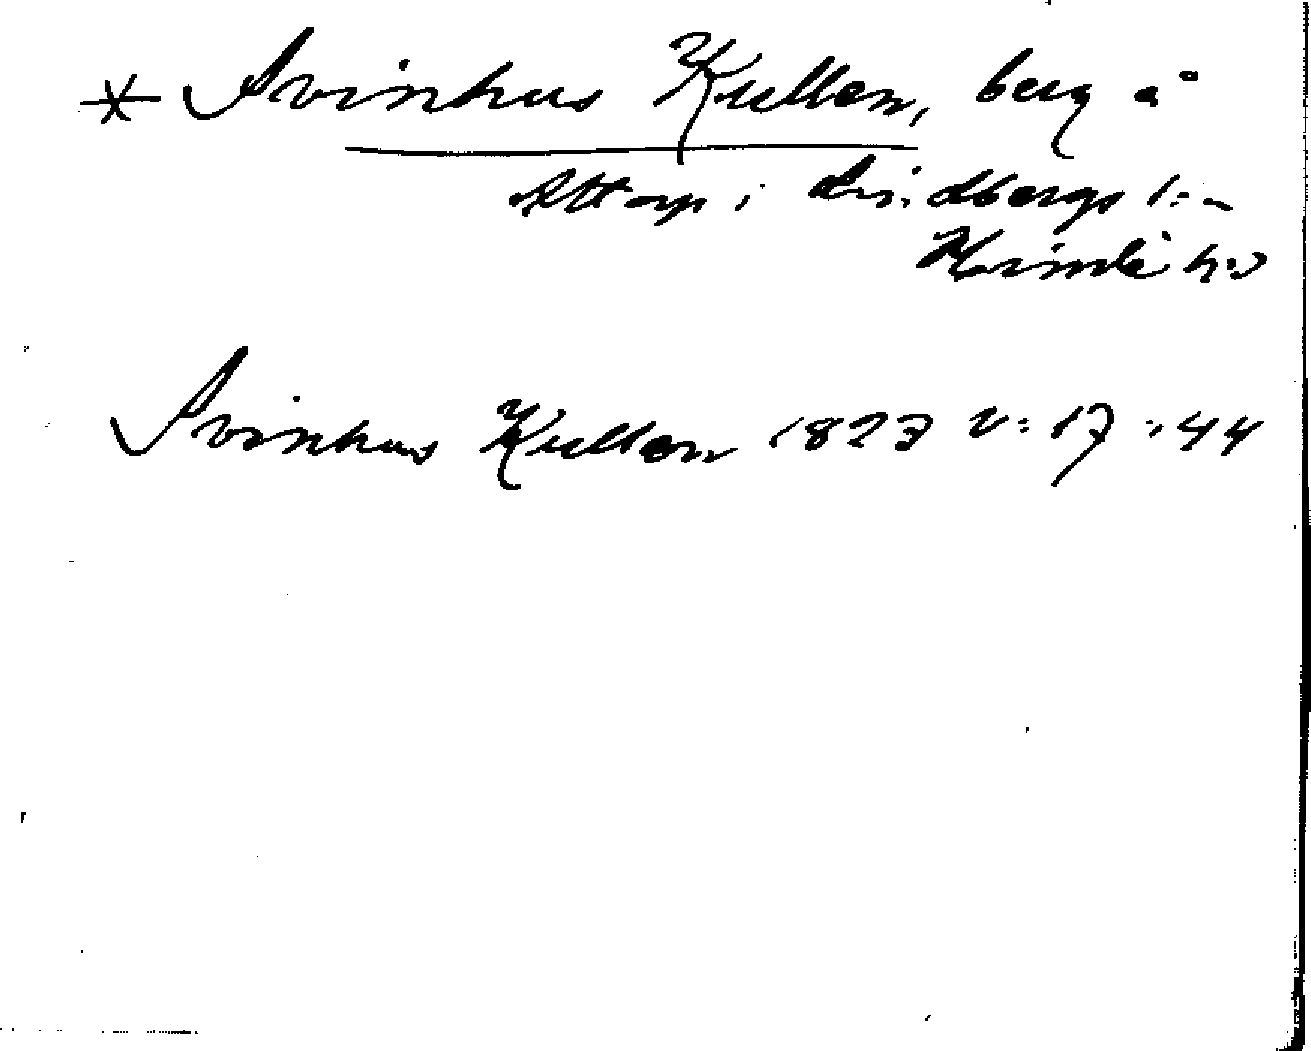 * Svinhus Kullen, berg å
Attarp i Lindbergs s:n
Himle h:d
Svinhus Kullen 1823 V: 17: 44